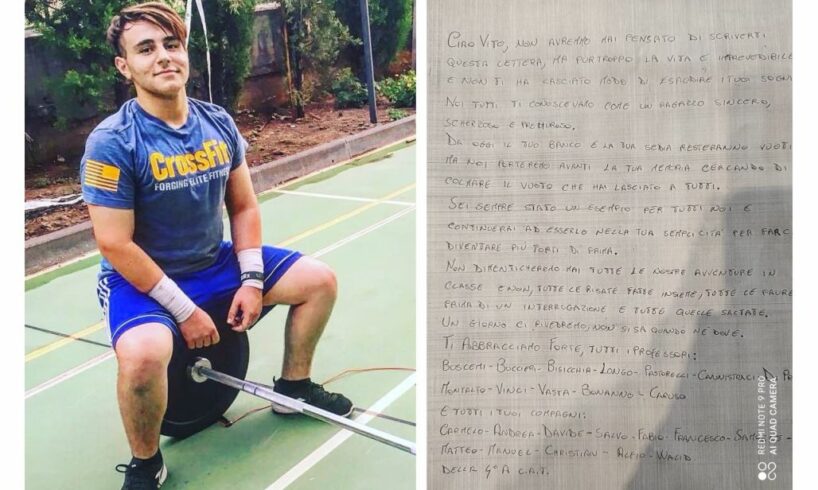 CrossFit
FORGING ELITE FITNE
CIAO VITO, NON AVREMMO MAI PENSATO DI SCRIVERTI
QUESTA LETTERA, MA PURTROPPO LA VITA È IMPREVEDIBILE
E NON TI HA LASCIATO MODO DI ESAUDIRE I TUOI SOGNI
NOI TUTTI TI CONOSCEVAMO COME UN RAGAZZO SINCERO,
SCHERZOSO E PREMUROSO.
DA OGGI IL TUO BANCO E LA TUA SEDIA RESTERANNO VUOTI
MA NOI PORTEREMO AVANTI LA TUA MEMORIA CERCANDO DI
COLMARE IL VUOTO CHE HAI LASCIATO A TUTTI.
SEI SEMPRE STATO UN ESEMPIO PER TUTTI NOI E
CONTINUERAI AD ESSERLO NELLA TUA SEMPLICITÀ PER FARC
DIVENTARE PIÙ FORTI DI PRIMA.
NON DIMENTICHEREMO MAI TUTTE LE NOSTRE AVVENTURE IN
CLASSE E NON, TUTTE LE RISATE FATTE INSIEME, TUTTE LE PAURE
PRIMA DI UN INTERROGAZIONE E TUTTE QUELLE SALTATE.
UN GIORNO CI RIVEDREMO, NON SI SA QUANDO NE DOVE.
TI ABBRACCIAMO FORTE, TUTTI I PROFESSORI:
BUSCEMI - BUCCERI - BISICCHIA - LONGO - PASTORELLI - CANNISTRACI
MONTALTO - VINCI - VASTA - BONANNO - CARUSO
E TUTTI I TUOI COMPAGNI:
CARMELO - ANDREA - DAVIDE - SALVO - FABIO - FRANCESCO -
MATTEO - MANUEL - CHRISTIAN - ALFIO - WALID
DELLA 4° A C.A.T.
REDMI NOTE 9 PRO
AI QUAD CAMERA